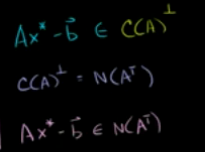 Ax* - b⃗ ∈ C(A)^⊥
C(A)^⊥ = N(A^T)
Ax* - b⃗ ∈ N(A^T)